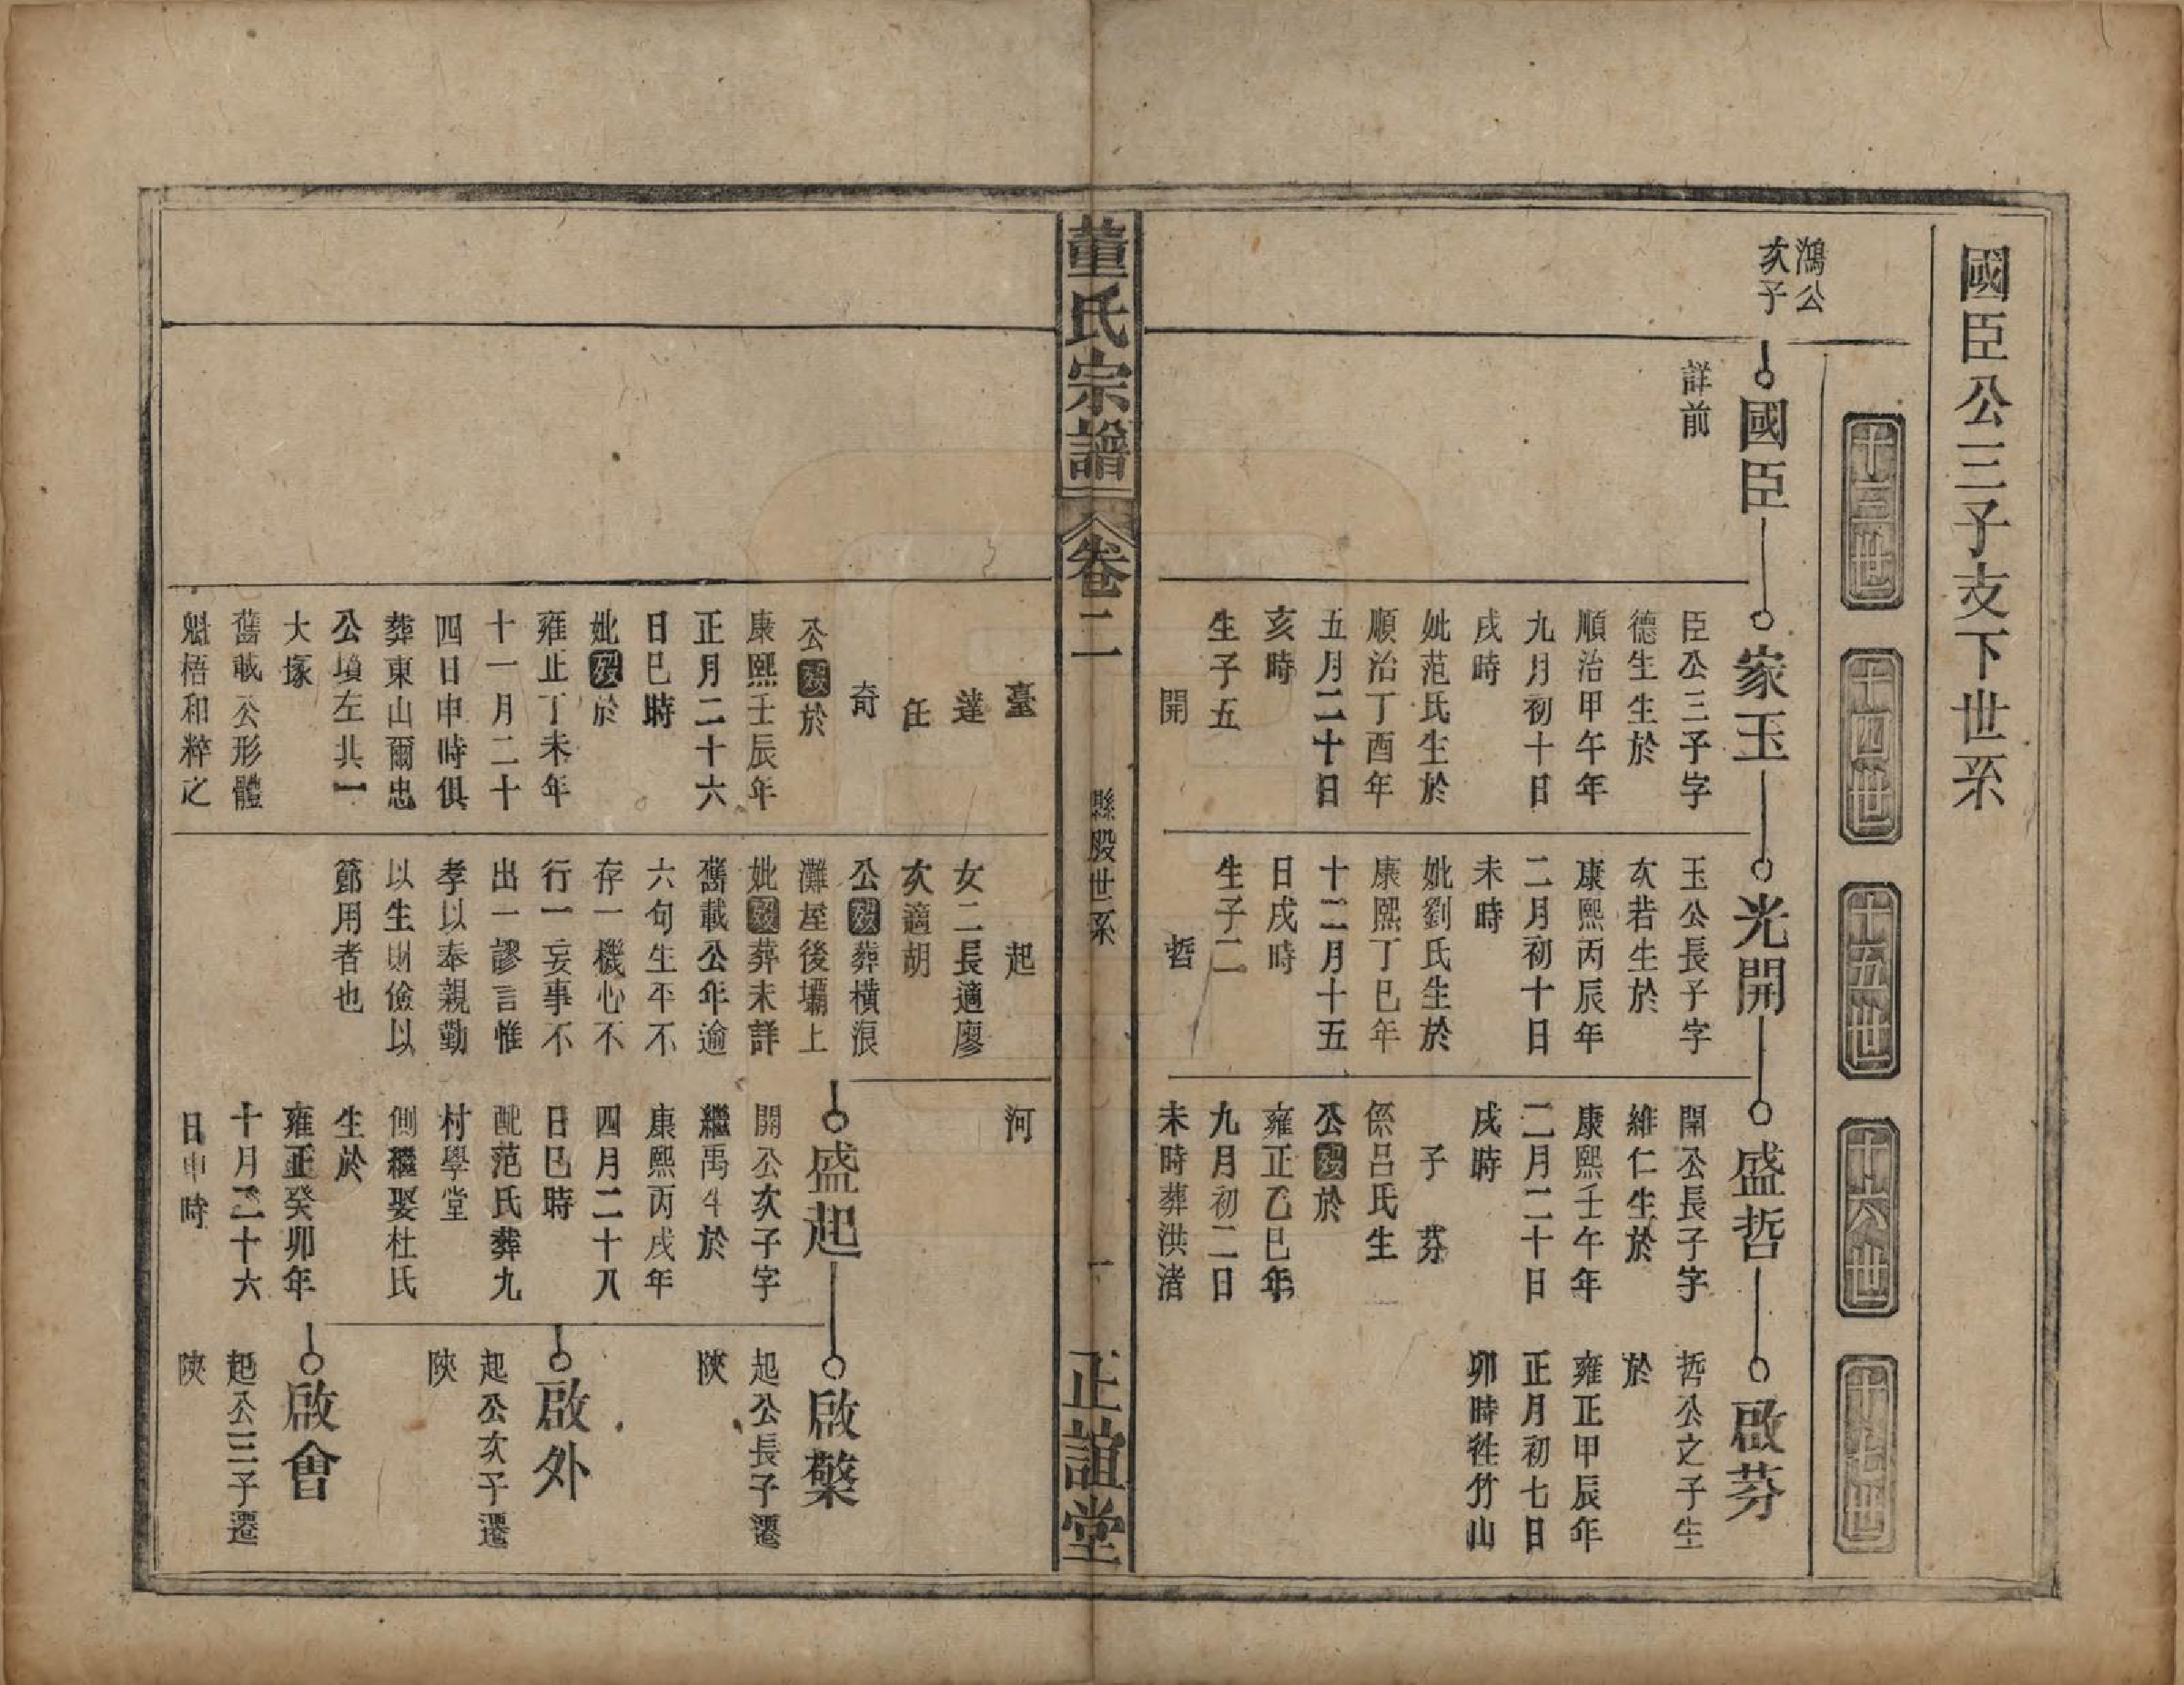 國臣公三子支下世系
十三世
十四世
十五世
十六世
十七世
鴻公
次子
國臣
詳前
家玉
臣公三子字
德生生於
順治甲午年
九月初十日
戌時
妣范氏生於
順治丁酉年
五月二十日
亥時
生子五
開
臺
達
任
奇
公歿於
康熙壬辰年
正月二十六
日巳時
妣歿於
雍正丁未年
十一月二十
四日申時俱
葬東山爾忠
公墳左共一
大塚
舊載公形體
魁梧和粹之
光開
玉公長子字
次若生於
康熙丙辰年
二月初十日
未時
妣劉氏生於
康熙丁巳年
十二月十五
日戌時
生子二
哲
起
女二長適廖
次適胡
公歿葬橫浪
灘垤後壩上
妣歿葬未詳
舊載公年逾
六旬生平不
存一機心不
行一妄事不
出一謬言惟
孝以奉親勤
以生財儉以
節用者也
盛哲
開公長子字
維仁生於
康熙壬午年
二月二十日
戌時
子 芬
係呂氏生
公歿於
雍正乙巳年
九月初二日
未時葬洪渚
河
盛起
開公次子字
繼禹生於
康熙丙戌年
四月二十八
日巳時
配范氏葬九
村學堂
側繼娶杜氏
生於
雍正癸卯年
十月二十六
日申時
啟芬
哲公之子生
於
雍正甲辰年
正月初七日
卯時徃竹山
啟檠
起公長子遷
陝
啟外
起公次子遷
陝
啟會
起公三子遷
陝
董氏宗譜
卷二
縣股世系
一
正誼堂